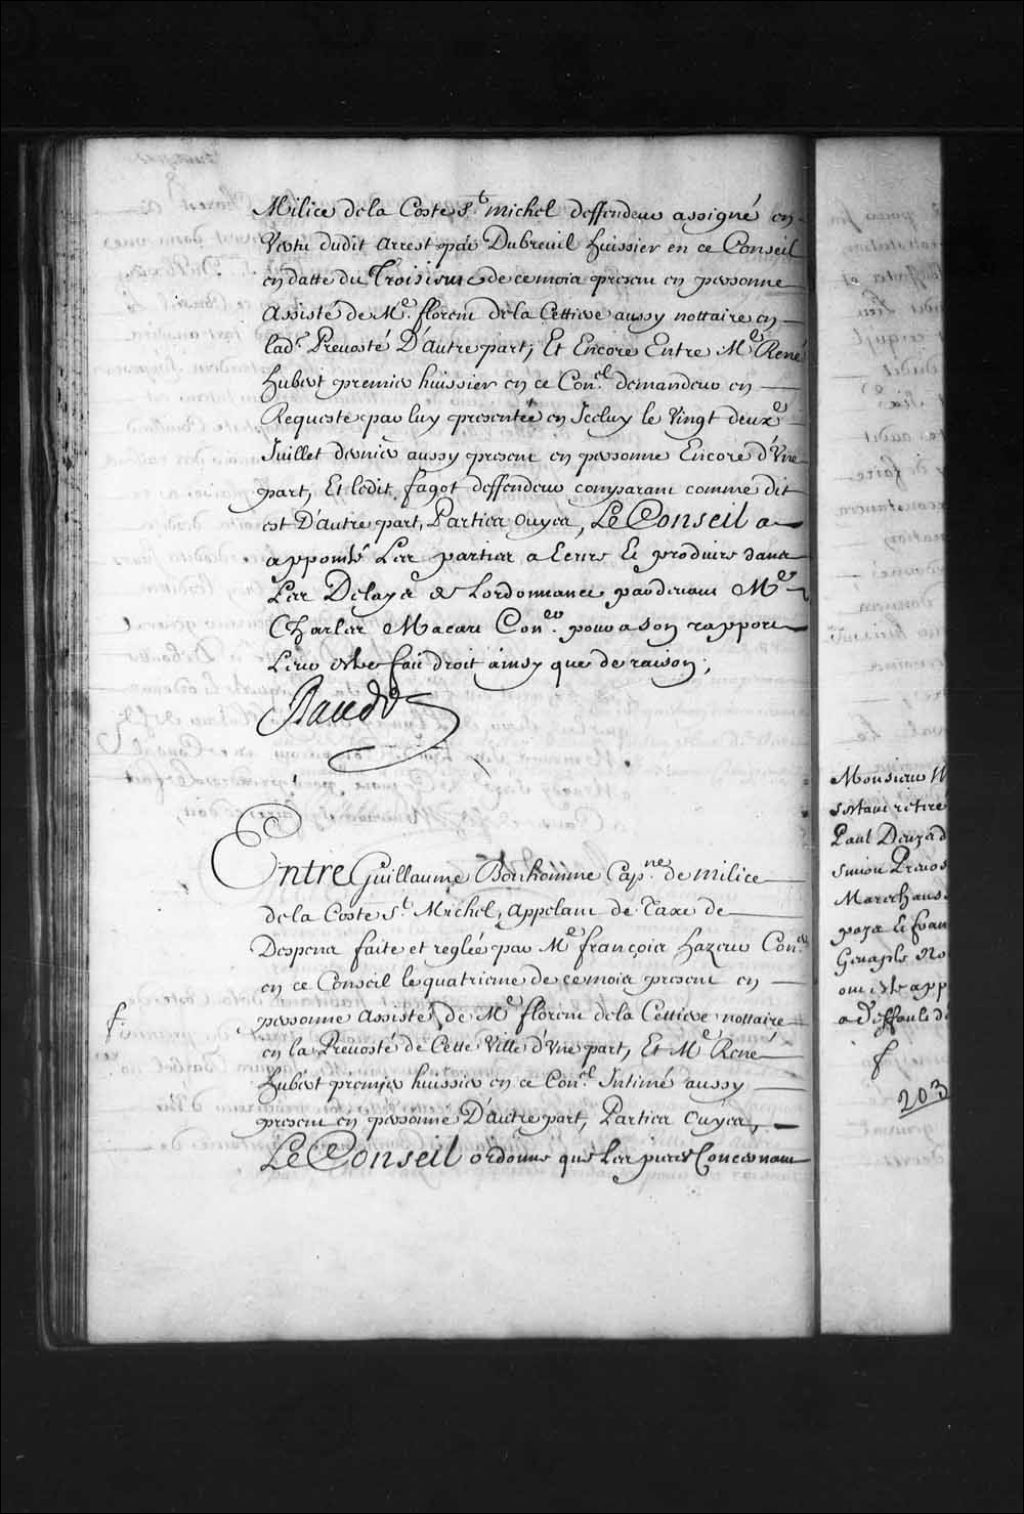 Milice de la Coste S.t Michel deffendeur assigné en
Vertu dudit arrest par Dubreuil huissier en ce Conseil
en datte du Troisieme de ce mois present en personne
Assisté de M.e florent de la Cettiere aussy nottaire en
lad.e Prevosté D'autre part, Et Encore Entre M.e René
hubert premier huissier en ce Con.el demandeur en
Requeste par luy presentée en Iceluy le Vingt deux.e
Juillet dernier aussy present en personne Encore d'Une
part, Et ledit fagot deffendeur comparant comme dit
est D'autre part, Parties ouyes, Le Conseil a
appointé Les parties a Ecrire Et produire dans
Les Delays de Lordonnance pardevant M.e
Charles Macart Con.er pour a son rapport
Leur estre fait droit ainsy que de raison;
Raudot
Entre Guillaume Bonhomme Cap.ne de milice
de la Coste S.t Michel, Appelant de Taxe de
Despens faite et reglée par M.e françois hazeur Con.er
en ce Conseil le quatrieme de ce mois present en
personne Assisté de M.e florent de la Cettiere nottaire
f.
en la Prevosté de Cette Ville d'Une part, Et M.e René
hubert premier huissier en ce Con.el Intimé aussy
present en personne D'autre part, Parties Ouyes,
Le Conseil ordonne que Les pieces Concernant
Monsieur
retiré
Paul
Marechaus
Et fran
app
a deffaut d
f
203